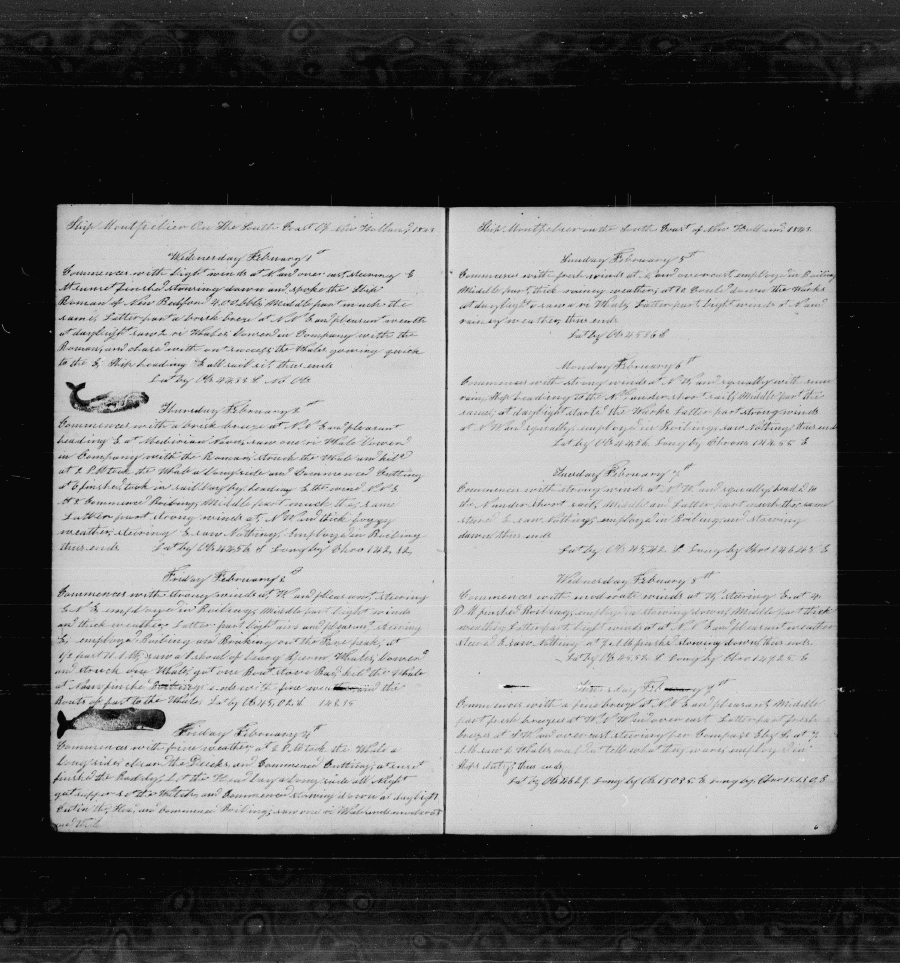 Ship Montpelier On The South Coast Of New Holland 1843
Wednesday February 1st
Commences with light winds at N and over cast steering E
At sunset finished stowing down and spoke the Ship
Roman of New Bedford 400 bbls Middle part much the
same, Latter part a brisk breeze at N.E and pleasant weather
at daylight saw 2 ri Whales Lowered in Company with the
Roman, and chased with out success the Whales going quick
to the E, Ship heading E all sail set, thus ends
Lat by Ob 44.33 S No Ob
Thursday February 2d
Commences with a brisk breeze at N.E and pleasant
heading E at Meridian Noon, saw one ri Whale Lowered
in Company with the Roman struck the Whale and kild
at 2 P.M took the Whale a Longside and Commenced Cutting
at 6 finished, took in sail Lay by heading E the wind N.N.E
At 8 Commenced Boiling, Middle part much the same
Latter part strong winds at N.W and thick foggy
weather steering E saw Nothing, Employed in Boiling
thus ends Lat by Ob 44.56 S Long by Chro 142.12
Friday February 3
Commences with strong winds at W and pleasant, steering
E.N.E employed in Boiling, Middle part light winds
and thick weather Latter part light airs and pleasant steering
E, employed Boiling and Breaking out the fore peak, at
1/2 past 11 A.M, saw a shoal of large Sperm Whales, Lowered
and struck one Whale, got one Boat stove Bad, kild the Whale
at Noon finished Boiling ends with fine weather and the
Boats of part to the Whale Lat by Ob 45.02 S 142.15
Friday February 4th
Commences with fine weather at 2 P.M took the Whale a
Longside, clear the Decks and Commenced Cutting, at sunset
finished the Body, Let the Head Lay a Longside all Night
got supper set the Watch and Commenced stowing down at daylight
Cut in the Head and Commenced Boiling, saw one ri Whale ends
and thick
Ship Montpelier on the South Coast of New Holland 1843
Sunday February 5th
Commences with fresh winds at E and overcast employed in Boiling
Middle part thick rainy weather, at 10 Cooled down the Works
at daylight saw a ri Whale, Latter part light winds at N and
rainy weather, thus ends
Lat by Ob 45.16 S
Monday February 6th
Commences with strong winds at N.W. and squally with some
rain, Ship heading to the N. under short sail, Middle part the
same, at daylight started the Works Latter part strong winds
at N.W and squally, employed in Boiling saw Nothing thus ends
Lat by Ob 44.56 Long by Chron 144.55 E
Tuesday February 7th
Commences with strong winds at N.W. and squally, headed to
the N under short sail, Middle and Latter part much the same
steered E saw Nothing, employed in Boiling and stowing
down thus ends
Lat by Ob 45.42 S Long by Chro 146.42 E
Wednesday February 8th
Commences with moderate winds at W, steering E. at 4
P.M finished Boiling, employed in stowing down, Middle part thick
weather, Latter part light winds at N.E and pleasant weather
steered E saw Nothing, at 9 A.M finished stowing down thus ends
Lat by Ob 45.56 S Long by Chro 149.25 E
Thursday February 9th
Commences with a fine breeze at N.E and pleasant Middle
part fresh breezes at W.N.W and over cast. Latter part fresh
breezes at S.W and over cast steering per Compass E by S, at 7
A.M saw 2 Whales could not tell what they were, employed in
Ships duty thus ends
Lat by Ob 46.29 Long by Ob 150.35 E Long by Chro 151.30 E
6